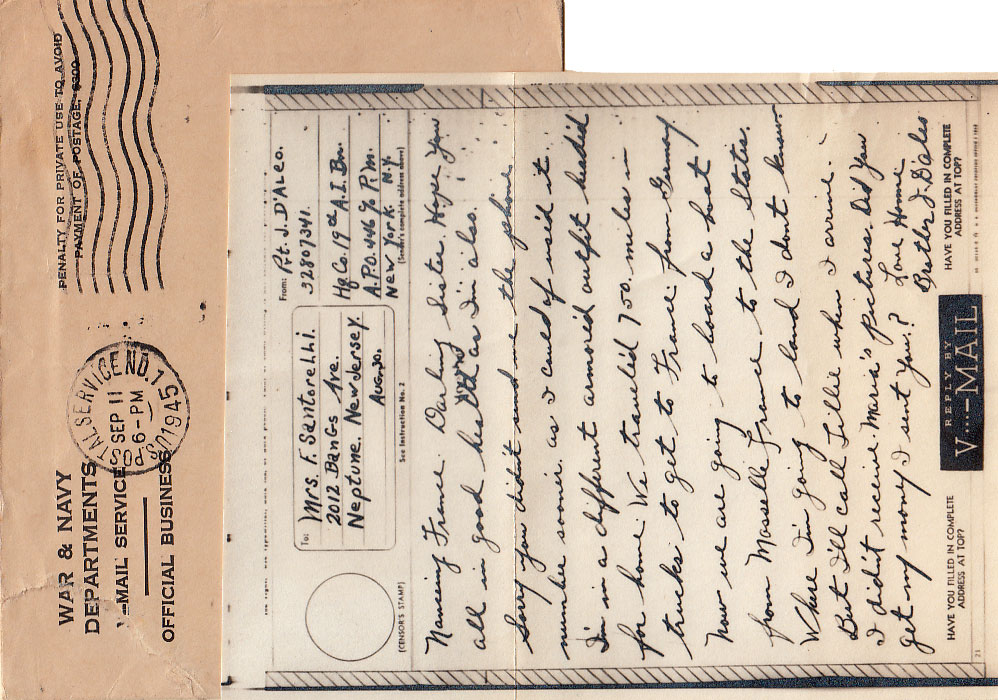 WAR & NAVY
DEPARTMENTS
V-MAIL SERVICE
OFFICIAL BUSINESS
PENALTY FOR PRIVATE USE TO AVOID
PAYMENT OF POSTAGE, $300
U.S. POSTAL SERVICE NO. 1
SEP 11
6-PM
1945
To: Mrs. F. Santorelli.
2012 Bangs Ave.
Neptune, New Jersey.
Aug. 30.
From: Pvt. J. D'Aleo.
32807341.
Hq. Co. 19th A.I. Bn.
A.P.O. 446 % P.M.
New York N.Y.
(Sender's complete address above)
(CENSOR'S STAMP)
See Instruction No. 2
Nancing France. Darling Sister. Hope You
all in good health as I'm also.
Sorry you didn't send me the phone
number sooner. as I could of used it.
I'm in a different armored outfit headid
for home. We travelid 750. miles in
trucks to get to France from Germany
Now we are going to board a boat
from Masselle France to the States.
Where I'm going to land I dont know
But I'll call Lillie when I arrive.
I didn't receive Maria's pictures. Did You
get my money I sent You.?
Love Home
Brother J. D'Aleo
HAVE YOU FILLED IN COMPLETE
ADDRESS AT TOP?
REPLY BY
V····—MAIL
HAVE YOU FILLED IN COMPLETE
ADDRESS AT TOP?
21